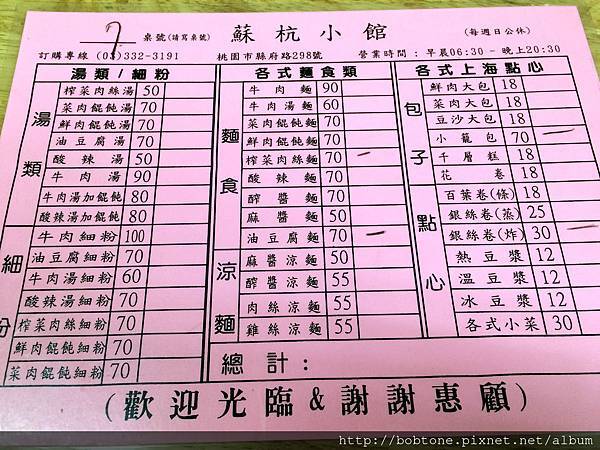 9 桌號(請寫桌號) 蘇杭小館 (每週日公休)
訂購專線 (03)332-3191 桃園市縣府路298號 營業時間：早晨06:30-晚上20:30
湯類/細粉
湯類
榨菜肉絲湯 50
菜肉餛飩湯 70
鮮肉餛飩湯 70
油豆腐湯 70
酸辣湯 50
牛肉湯 90
牛肉湯加餛飩 80
酸辣湯加餛飩 80
細粉
牛肉細粉 100
油豆腐細粉 70
牛肉湯細粉 60
酸辣湯細粉 70
榨菜肉絲細粉 70
鮮肉餛飩細粉 70
菜肉餛飩細粉 70
各式麵食類
麵食
牛肉麵 90
牛肉湯麵 60
菜肉餛飩麵 70
鮮肉餛飩麵 70
榨菜肉絲麵 70
酸辣麵 70
醡醬麵 70
麻醬麵 50
油豆腐麵 70
涼麵
麻醬涼麵 50
醡醬涼麵 55
肉絲涼麵 55
雞絲涼麵 55
總計：
各式上海點心
包子
鮮肉大包 18
菜肉大包 18
豆沙大包 18
小籠包 70
千層糕 18
花卷 18
點心
百葉卷(條) 18
銀絲卷(蒸) 25
銀絲卷(炸) 30
熱豆漿 12
溫豆漿 12
冰豆漿 12
各式小菜 30
(歡迎光臨&謝謝惠顧)
http://bobtone.pixnet.net/album